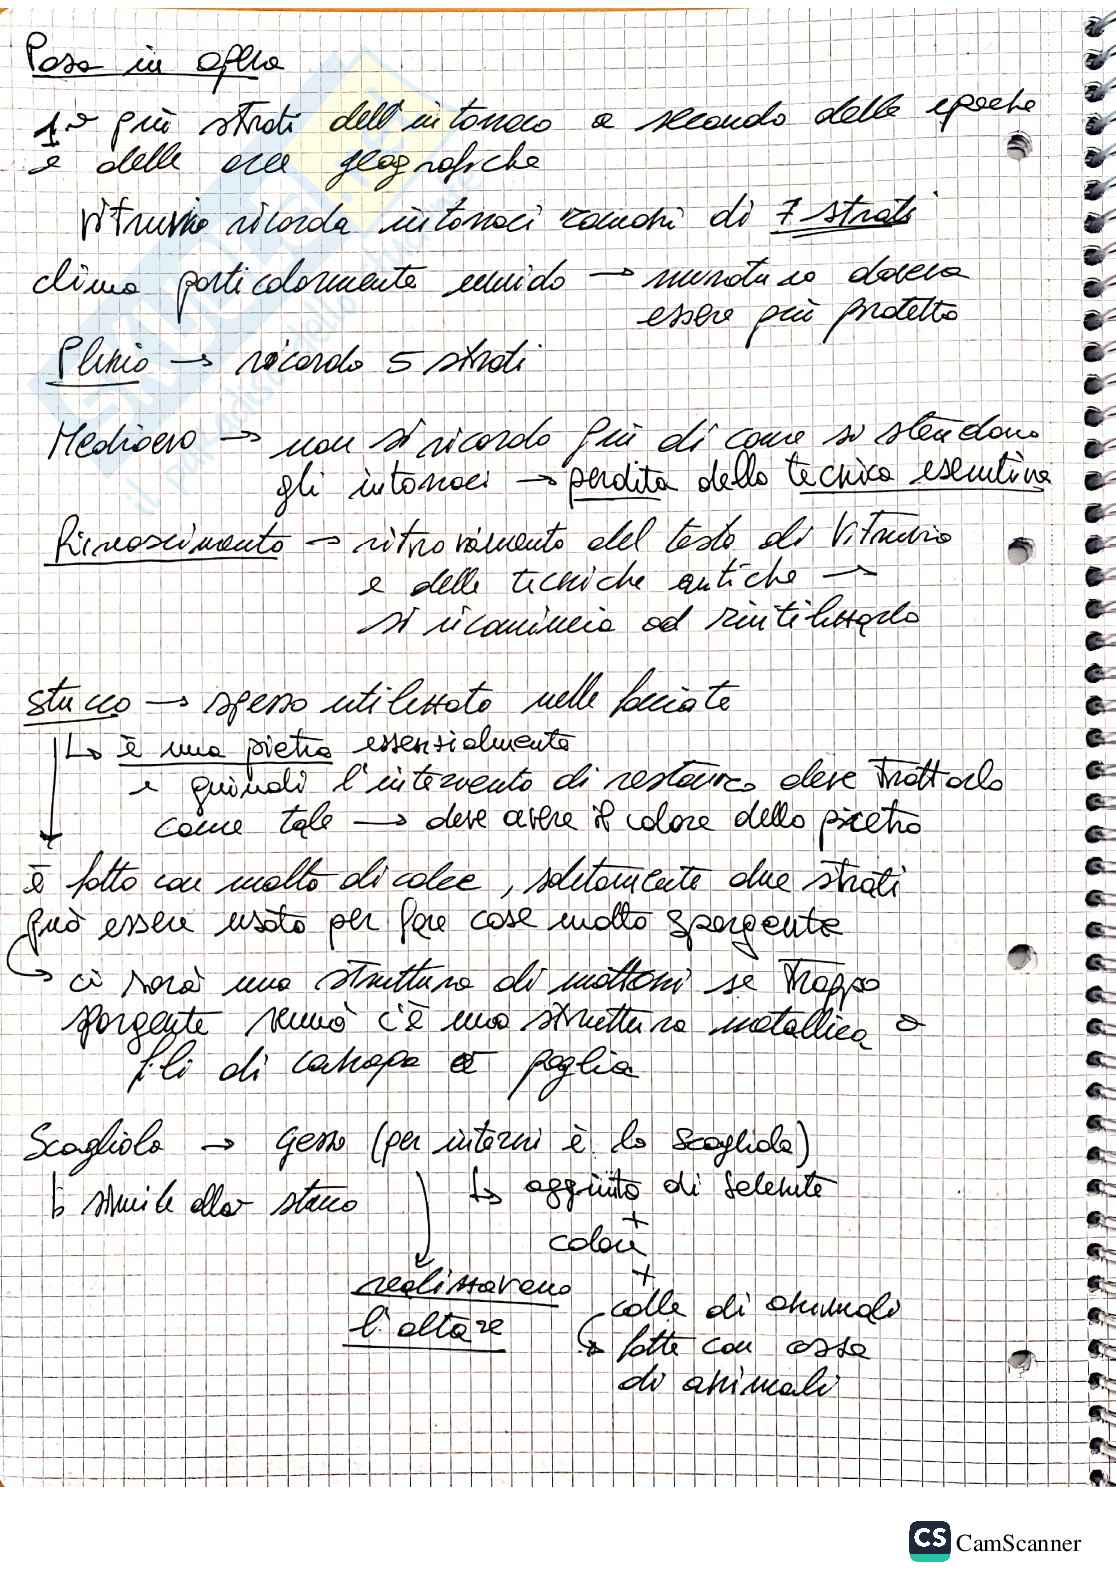 Posa in opera
1 o più strati dell'intonaco a secondo delle epoche
e delle aree geografiche
Vitruvio ricorda intonaci romani di 7 strati
clima particolarmente umido → muratura doveva
essere più protetta
Plinio → ricorda 5 strati
Medioevo → non si ricorda più di come si stendono
gli intonaci → perdita della tecnica esecutiva
Rinascimento → ritrovamento del testo di Vitruvio
e delle tecniche antiche →
si ricomincia ad riutilizzarlo
stucco → spesso utilizzato nelle facciate
↳ è una pietra essenzialmente
e quindi l'intervento di restauro deve trattarlo
come tale → deve avere il colore della pietra
è fatto con molto di calce, solitamente due strati
può essere usato per fare cose molto sporgente
→ ci sarà una struttura di mattoni se troppo
sporgente sennò c'è una struttura metallica o
fili di canapa o paglia
Scagliola → gesso (per interni è la scagliola)
↳ simile allo stucco
↳ aggiunta di selenite
+
colore
+
realizzavano
l'altare
colle di animali
↳ fatte con ossa
di animali
CS CamScanner